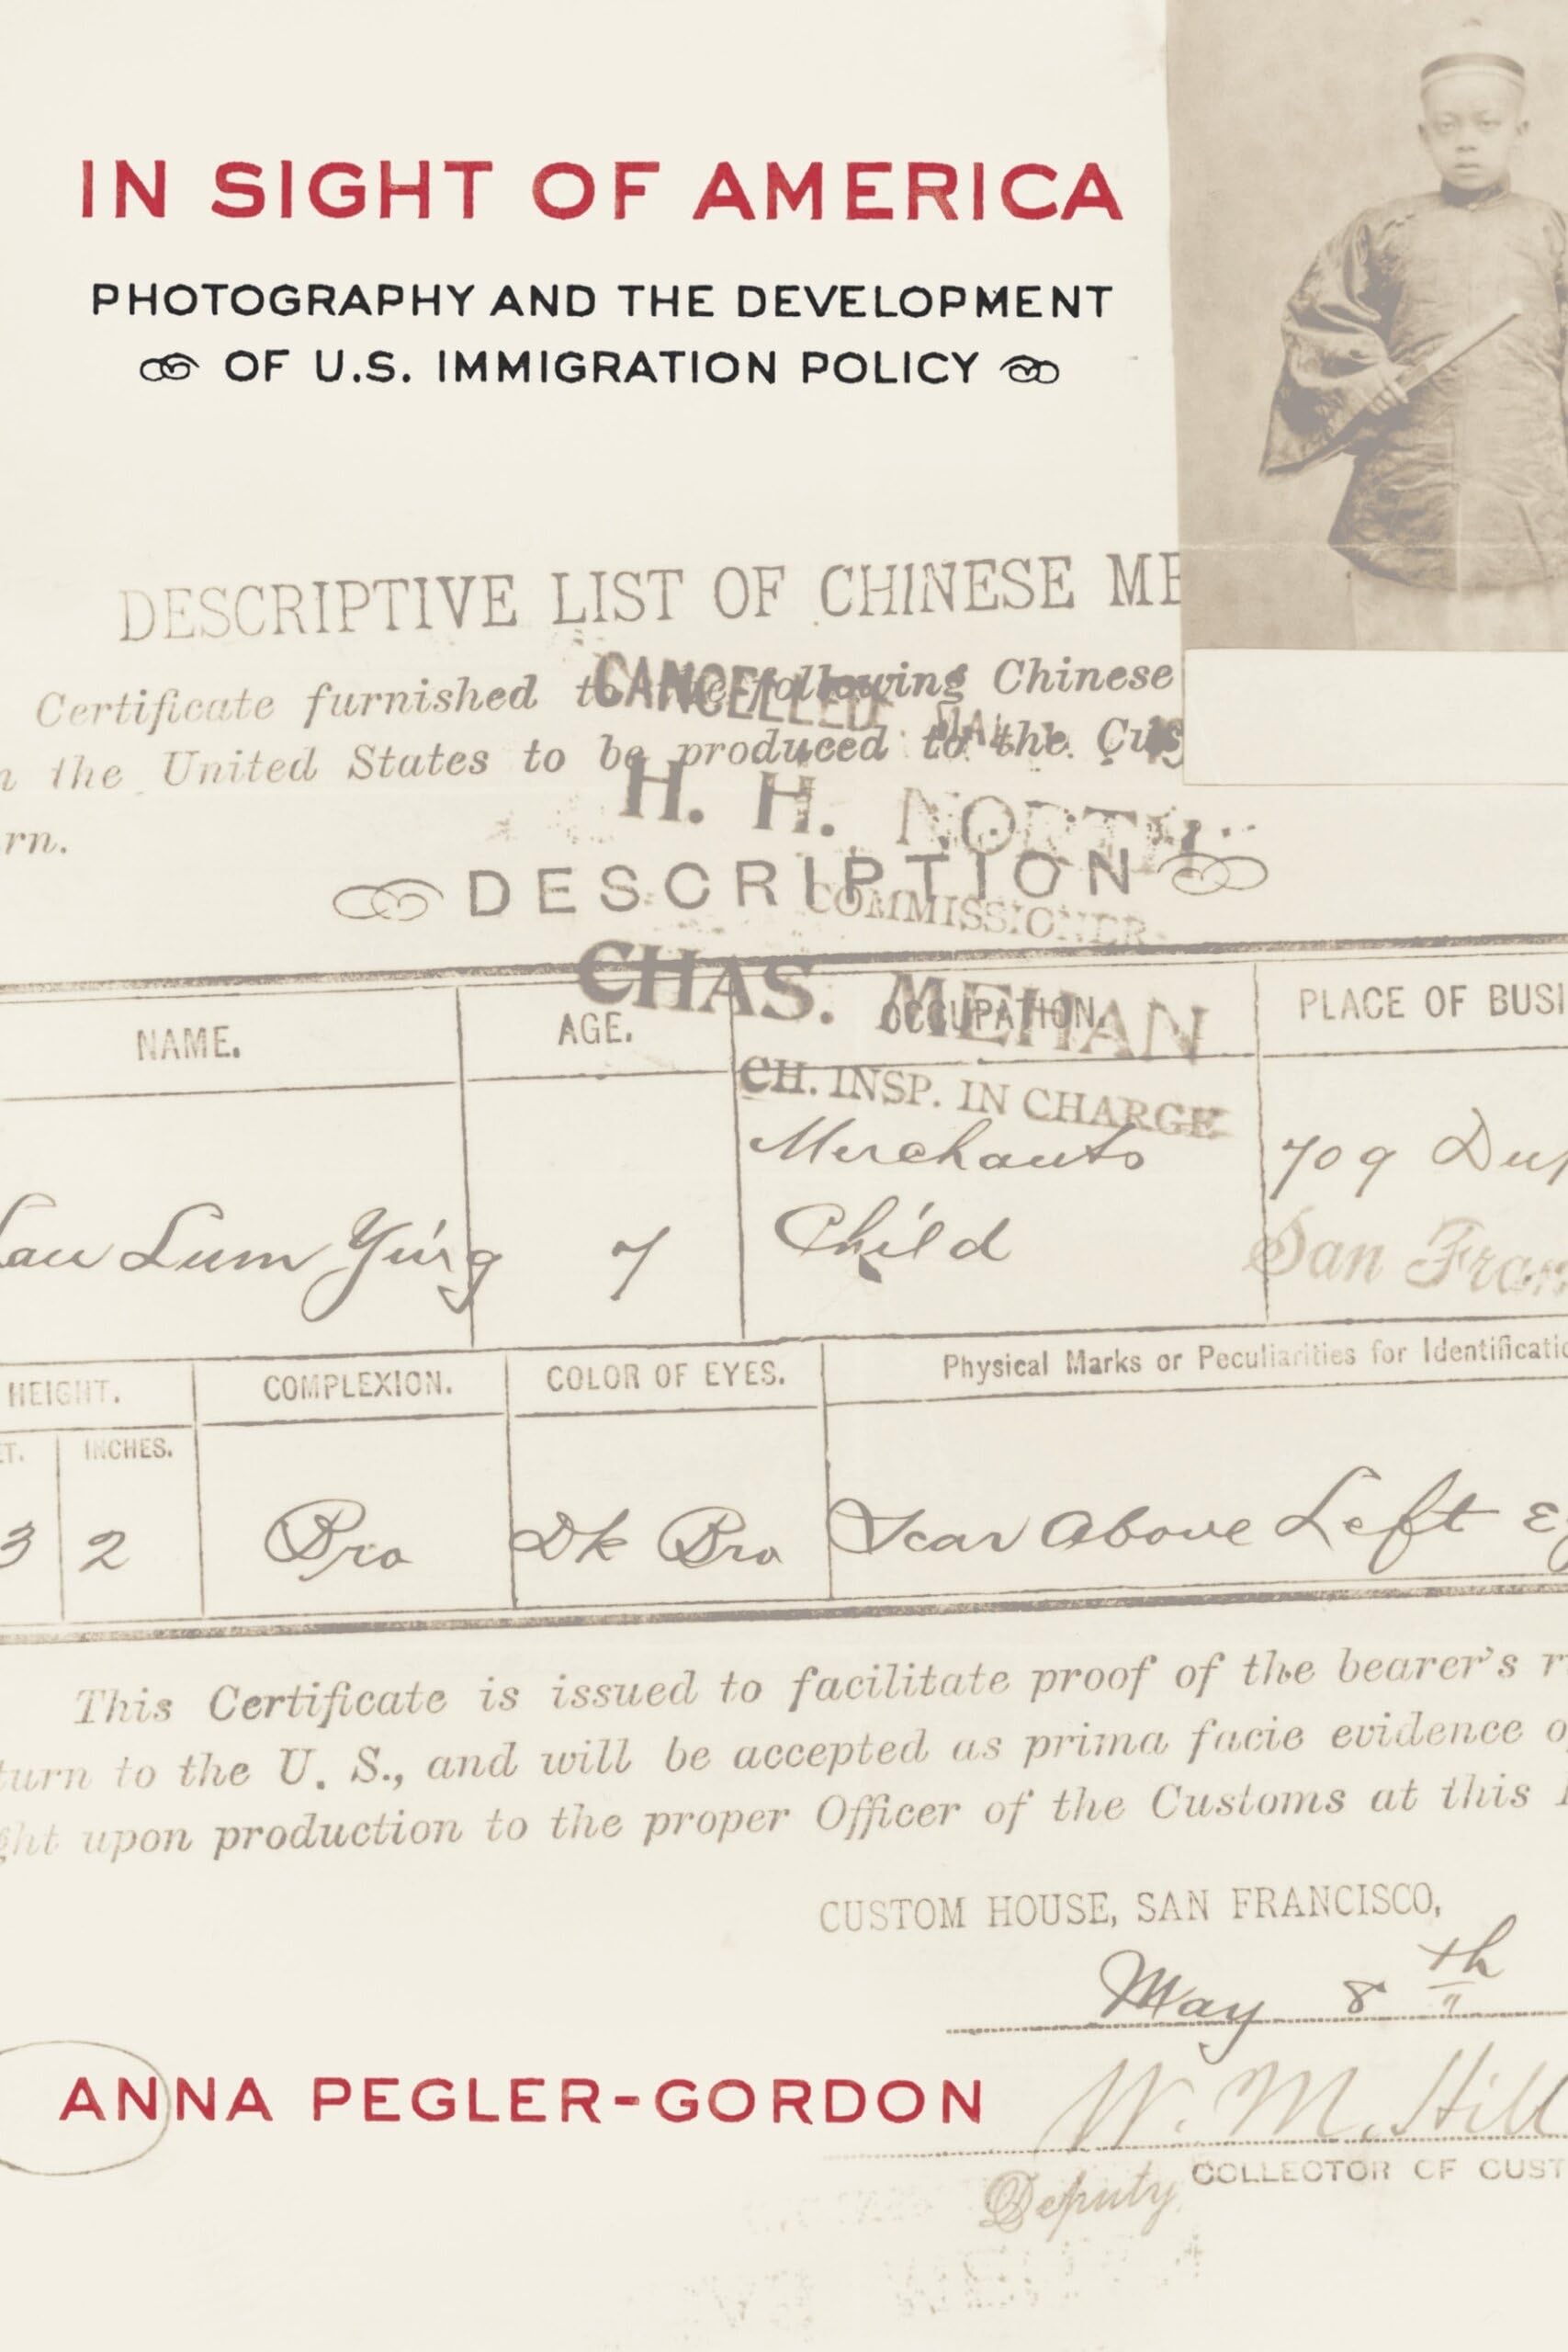 IN SIGHT OF AMERICA
PHOTOGRAPHY AND THE DEVELOPMENT
OF U.S. IMMIGRATION POLICY
DESCRIPTIVE LIST OF CHINESE ME
Certificate furnished to the following Chinese
CANCELLED
the United States to be produced to the Cus
rn.
H. H. NORTH
DESCRIPTION
COMMISSIONER
CHAS. MEHAN
NAME. AGE. OCCUPATION. PLACE OF BUSI
CH. INSP. IN CHARGE
Merchants 709 Dup
Lau Lum Ying 7 Child San Fran
HEIGHT. COMPLEXION. COLOR OF EYES. Physical Marks or Peculiarities for Identificatio
ET. INCHES.
3 2 Bro Dk Bro Scar Above Left Ey
This Certificate is issued to facilitate proof of the bearer's r
turn to the U. S., and will be accepted as prima facie evidence of
ght upon production to the proper Officer of the Customs at this
CUSTOM HOUSE, SAN FRANCISCO,
May 8th
ANNA PEGLER-GORDON
W. M. Hill
Deputy COLLECTOR OF CUST